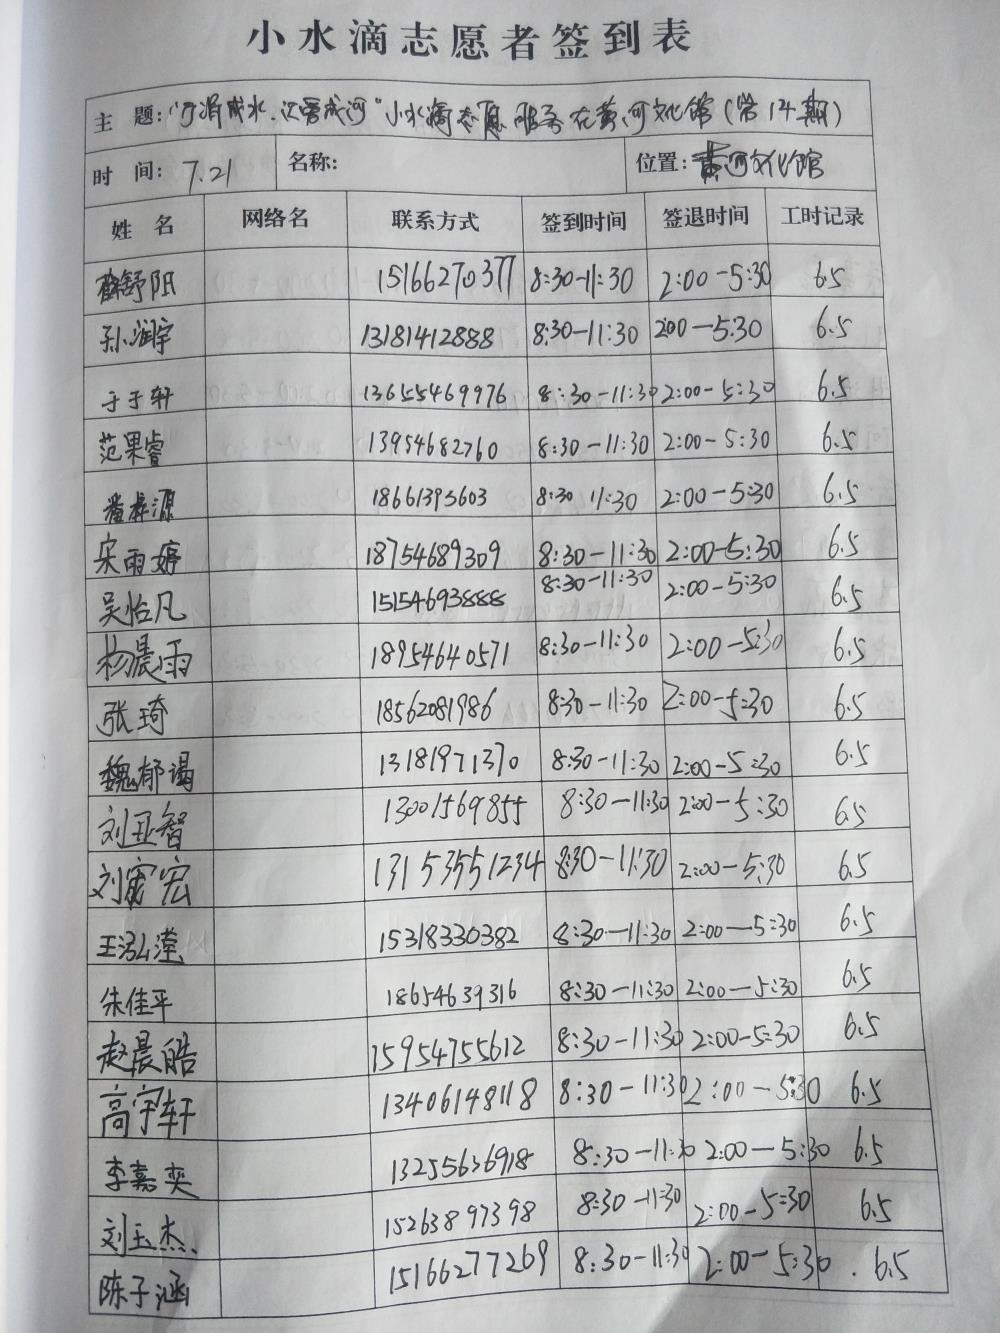 小水滴志愿者签到表
主 题: "涓涓成水，汇聚成河"小水滴志愿服务在黄河文化馆(第14期)
时 间: 7.21 名称: 位置: 黄河文化馆
姓 名 网络名 联系方式 签到时间 签退时间 工时记录
舒阳 15166270377 8:30-11:30 2:00-5:30 6.5
孙润宇 13181412888 8:30-11:30 2:00-5:30 6.5
于子轩 13655469976 8:30-11:30 2:00-5:30 6.5
范果睿 13954682760 8:30-11:30 2:00-5:30 6.5
源 18661395603 8:30 11:30 2:00-5:30 6.5
宋雨婷 18754689309 8:30-11:30 2:00-5:30 6.5
吴怡凡 15154693888 8:30-11:30 2:00-5:30 6.5
杨晨雨 18954640571 8:30-11:30 2:00-5:30 6.5
张琦 18562081986 8:30-11:30 2:00-5:30 6.5
魏郁谒 13181971370 8:30-11:30 2:00-5:30 6.5
刘亚智 13001569855 8:30-11:30 2:00-5:30 6.5
刘宏 13153551234 8:30-11:30 2:00-5:30 6.5
王泓滢 15318330382 8:30-11:30 2:00-5:30 6.5
朱佳平 18654639316 8:30-11:30 2:00-5:30 6.5
赵晨皓 15954755612 8:30-11:30 2:00-5:30 6.5
高宇轩 13406148118 8:30-11:30 2:00-5:30 6.5
李嘉奕 13255636918 8:30-11:30 2:00-5:30 6.5
刘玉杰 15263897398 8:30-11:30 2:00-5:30 6.5
陈子涵 15166277269 8:30-11:30 2:00-5:30 6.5